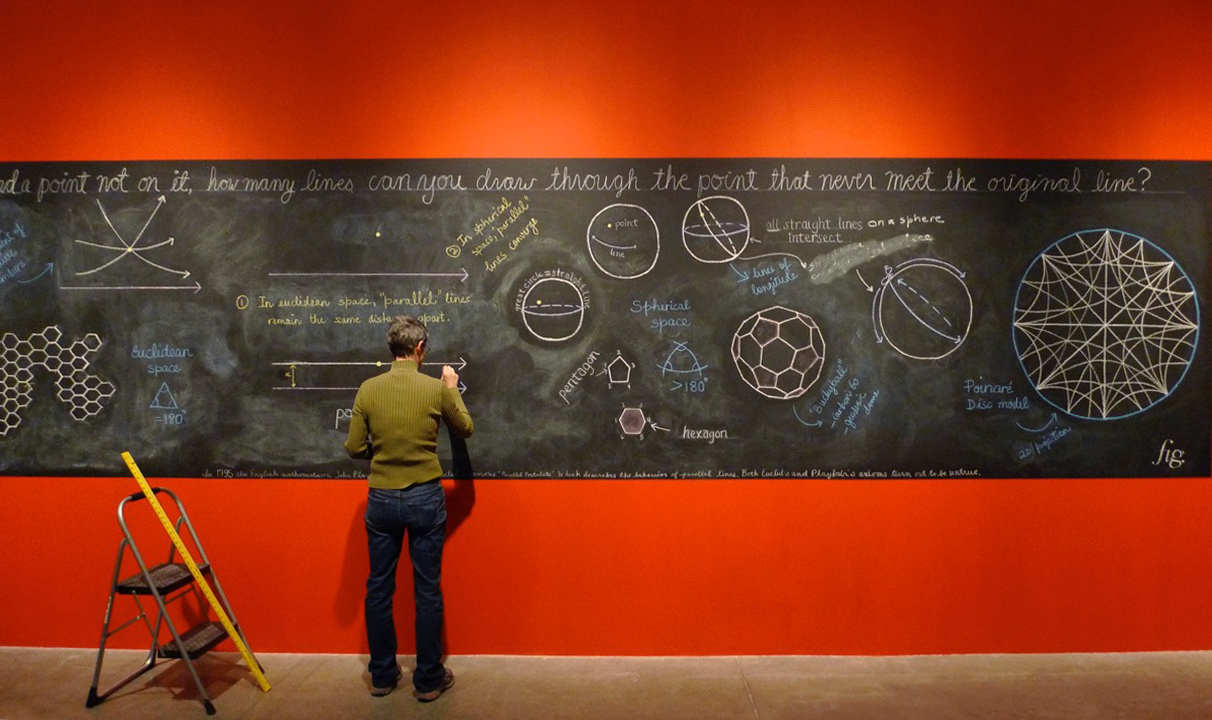 a point not on it, how many lines can you draw through the point that never meet the original line?
② In spherical
space, "parallel"
lines converge
① In euclidean space, "parallel" lines
remain the same apart.
Euclidean
space
=180°
great circle = straight line
point
line
all straight lines on a sphere
intersect
lines of
longitude
Spherical
space
>180°
pentagon
1
2
3
4
5
hexagon
"Buckyball"
- carbon 60
- geodesic
dome
Poincaré
Disc model
2D projection
fig.
In 1795 the English mathematician John "Parallel Postulate" which describes the behavior of parallel lines. Both Euclid's and Playfair's axioms turn out to be untrue.